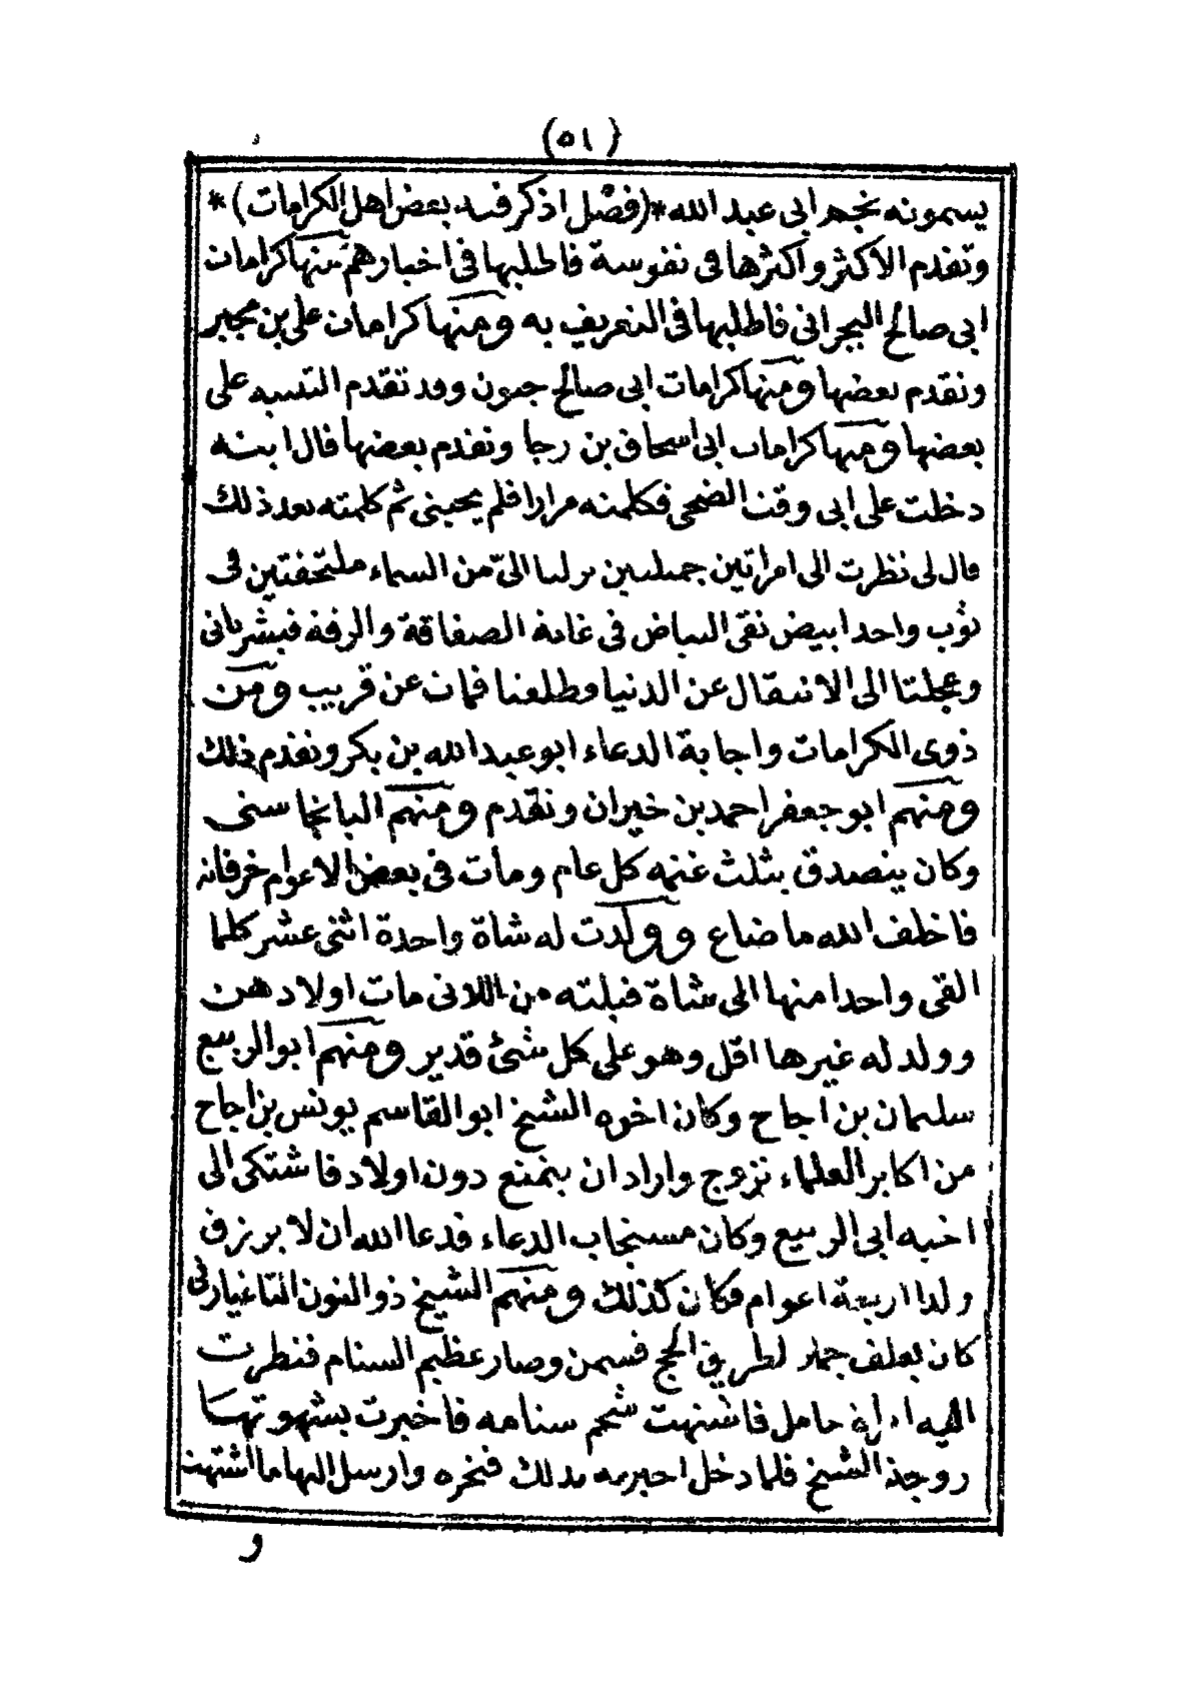 (٥١)
يسمونه بجهر ابى عبد الله *(فصل اذكر فيه بعض اهل الكرامات)*
وتقدم الاكثر واكثرها فى نفوسة فاطلبها فى اخبارهم منها كرامات
ابى صالح اليجرانى فاطلبها فى التعريف به ومنها كرامات على بن مجبر
وتقدم بعضها ومنها كرامات ابى صالح جنون وقد تقدم التنبيه على
بعضها ومنها كرامات ابى اسحاق بن رجا وتقدم بعضها قال ابنه
دخلت على ابى وقت الضحى فكلمته مرارا فلم يجبنى ثم كلمته بعد ذلك
قال لى نظرت الى امراتين جميلتين نزلتا الىّ من السماء ملتحفتين فى
ثوب واحد ابيض نقى البياض فى غاية الصفاقة والرقة فبشرتانى
وعجلتا الى الانتقال عن الدنيا وطلعتا فمات عن قريب ومن
ذوى الكرامات واجابة الدعاء ابو عبد الله بن بكر وتقدم ذلك
ومنهم ابو جعفر احمد بن خيران وتقدم ومنهم الباتجا سنى
وكان يتصدق بثلث غنمه كل عام ومات فى بعض الاعوام خرفانه
فاخلف الله ما ضاع وولدت له شاة واحدة اثنى عشر كلما
القى واحدا منها الى شاة قبلته من اللاتى مات اولادهن
وولد له غيرها اقل وهو على كل شئ قدير ومنهم ابو الربيع
سليمان بن اجاج وكان اخوه الشيخ ابو القاسم يونس بن اجاج
من اكابر العلماء تزوج واراد ان يتمتع دون اولاد فاشتكى الى
اخيه ابى الربيع وكان مستجاب الدعاء فدعا الله ان لا يرزق
ولدا اربعة اعوام فكان كذلك ومنهم الشيخ ذو النون التاغيارتى
كان يعلف جملا لطريق الحج فسمن وصار عظيم السنام فنظرت
اليه امراة حامل فاشتهت شحم سنامه فاخبرت بشهوتها
زوجة الشيخ فلما دخل اخبرته بذلك فنحره وارسل اليها ما اشتهت
و